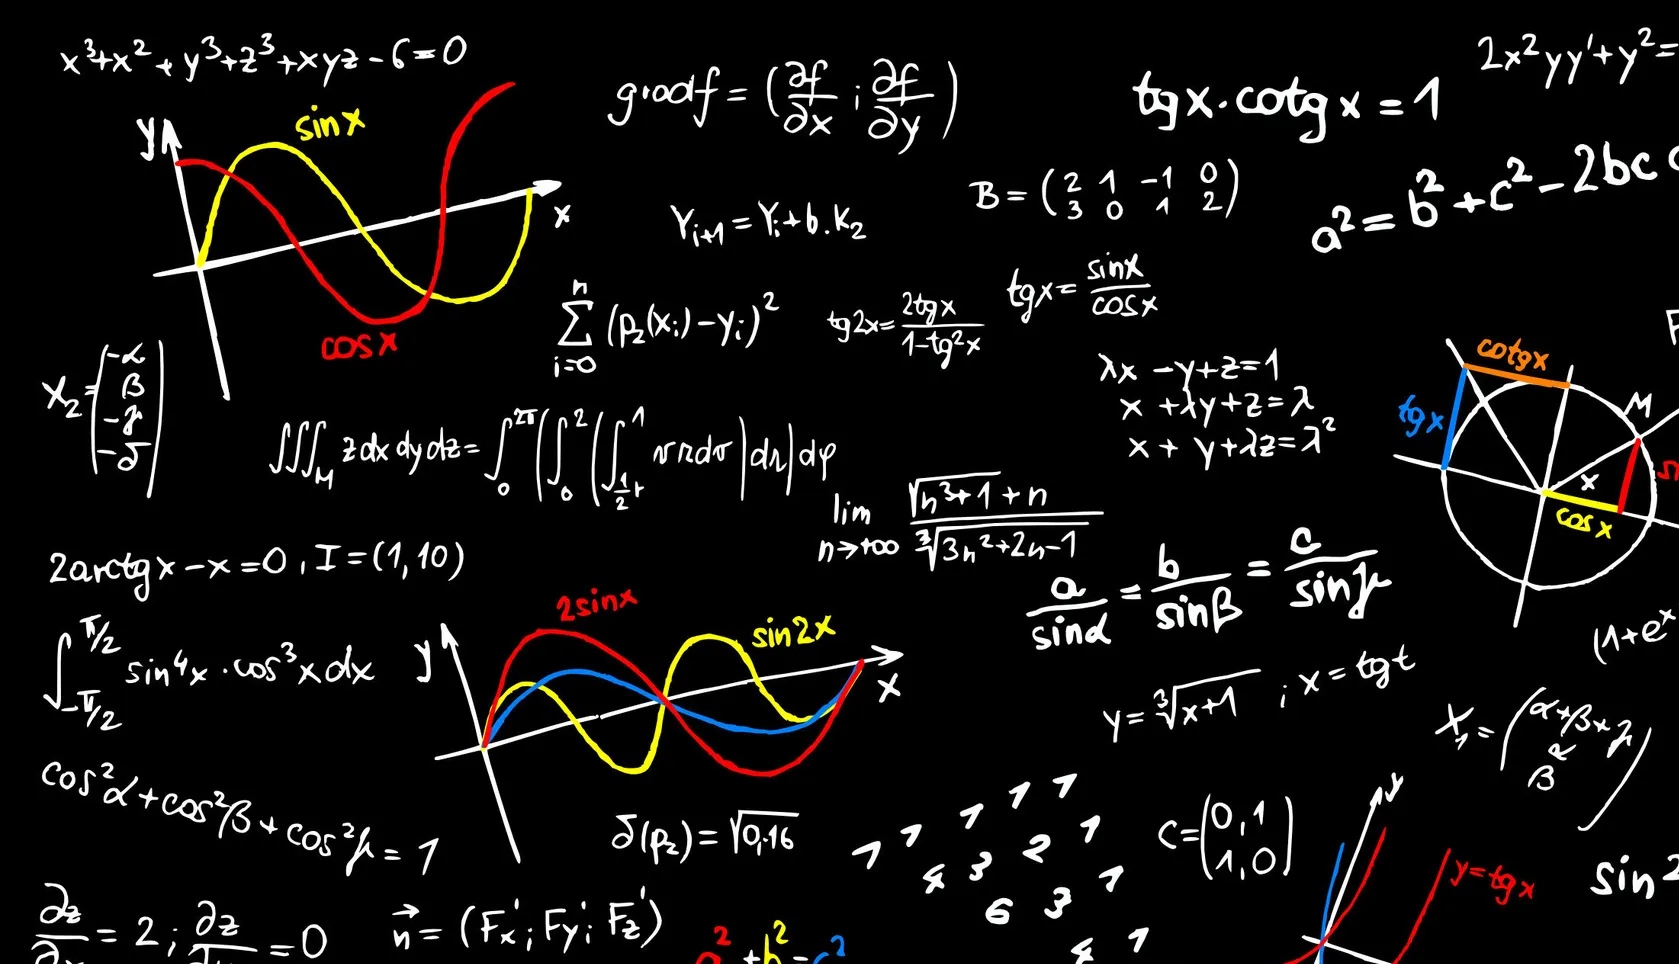 x³+x²+y³+z³+xyz-6=0
gradf=(∂f/∂x;∂f/∂y)
tgx·cotgx=1
2x²yy'+y²=
y
sinx
x
cosx
B=(2 1 -1 0
3 0 1 2)
a²=b²+c²-2bc
Yi+1=Yi+b.K2
tgx=sinx/cosx
n
∑(p₂(xi)-yi)²
i=0
tg2x=2tgx/1-tg²x
X₂=(-α
β
-γ
-δ)
λx-y+z=1
x+λy+z=λ
x+y+λz=λ²
cotgx
tgx
M
x
cosx
∭M zdxdydz=∫₀²π(∫₀²(∫½r¹ vrdv)dr)dφ
lim n→+∞ √n³+1+n/∛3n²+2n-1
2arctgx-x=0, I=(1,10)
a/sinα=b/sinβ=c/sinγ
(1+eˣ
∫-π/2 π/2 sin⁴x·cos³xdx
y
2sinx
sin2x
x
y=∛x+1 ; x=tgt
X₁=(α+β+γ
α
β)
cos²α+cos²β+cos²γ=1
δ(p₂)=√0,16
1 1 1 1 1
4 3 2 1
6 3 1
4 1
C=(0,1
1,0)
y
y=tgx
sin2
∂z/∂x=2; ∂z/=0
n⃗=(Fx';Fy';Fz')
a²+b²=c²